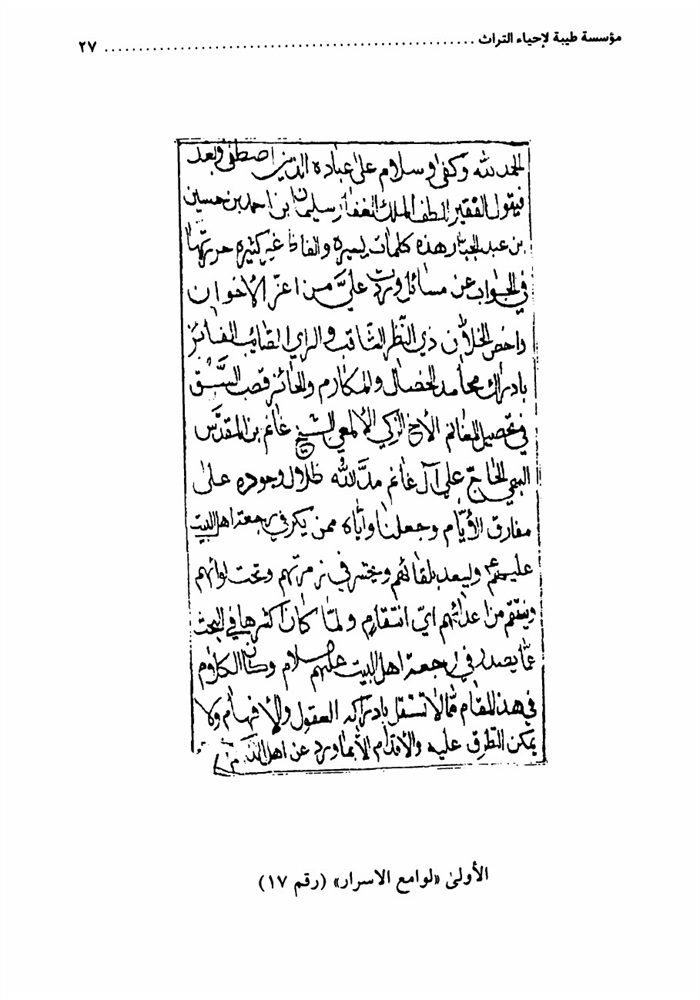 مؤسسة طيبة لإحياء التراث ........................................................ ٢٧
الحمد لله وكفى وسلام على عباده الذين اصطفى وبعد
فيقول الفقير للطف الملك الغفار سليمان بن احمد بن حسين
بن عبد الجبار هذه كلمات يسيرة والفاظ غير كثيرة حررتها
في الجواب عن مسائل وردت عليَّ من اعز الاخوان
واخص الخلان ذي النظر الثاقب والراي الصائب الفائز
بادراك محامد الخصال والمكارم والحائز قصب السَّبق
في تحصيل المغانم الاخ الزكي الالمعي الشيخ غانم بن المقدَّس
الحاجّ علي آل غانم مدَّ الله ظلال وجوده على
مفارق الأيَّام وجعلنا وأياه ممن يكر في رجعة اهل البيت
عليهم ع ويسعد بلقائهم ويحشر في زمرتهم وتحت لوائهم
وينتقم من اعدائهم ايّ انتقام ولمّا كان اكثرها في البحث
عمّا يصدر في رجعة اهل البيت عليهم السلام وكان الكلام
في هذا المقام ممّا لا تستقل بادراكه العقول والافهام ولا
يمكن التطرق عليه والاقدام الا بما ورد عن اهل
الأولىٰ «لوامع الاسرار» (رقم ١٧)